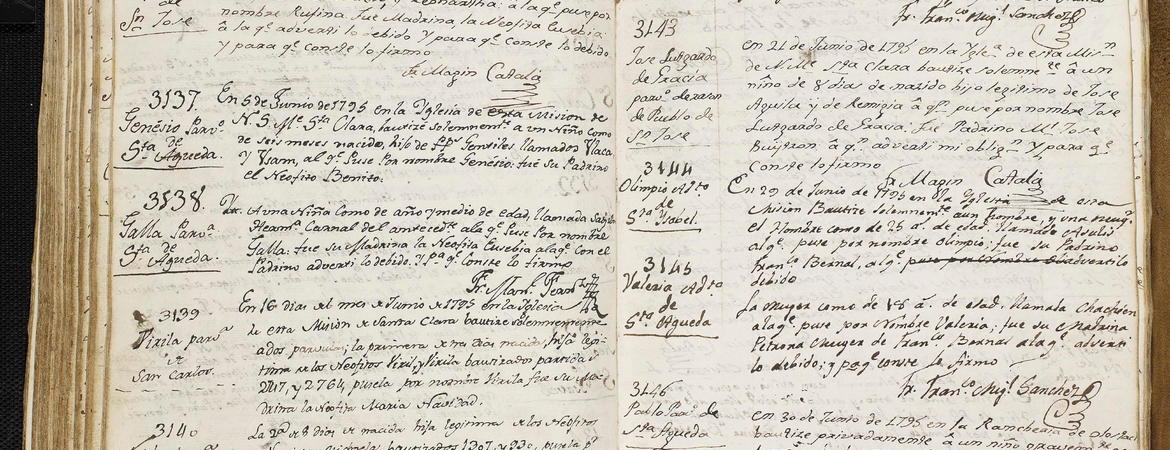 Sn Jose
nombre Rufina. fue Madrina, la Neofita Eusebia:
à la qe. adverti lo debido y para qe. Conste lo debido
y para qe. conste lo firmo
Fr. Magin Catalá
3137.
Genésio Parvo.
Sta. de
Agueda.
En 5 de Junio de 1795 en la Yglesia de esta Mision de
N. S. Me. Sta. Clara, bautizè solemnemte. a un Niño como
de seis meses nacido, hijo de Gentiles llamados
y al qe. Puse Por nombre Genésio: fué su Padrino
el Neofito Benito.
3138.
Galla Parva.
Sta. de
Agueda.
A una Niña como de año y medio de edad, llamada
Hermª. Carnal del antecedte. a la qe. Puse Por nombre
Galla: fue su Madrina la Neofita Eusebia a la qe. con el
Padrino adverti lo debido. Y Pa. qe. Conste lo firmo
Fr. Manl. Fernz.
3139
Virila parva
de
San Carlos.
En 16 dias del mes de Junio de 1795 en la Iglesia
de esta Mision de Santa Clara bautize solemnemente
a dos parvulas; la primera de dias nacida, hija legi-
tima de los Neofitos Viril, y Virila bautizados partida
y 2764, pusela por nombre Virila fue su Ma-
drina la Neofita Maria Navidad.
3140
La 2a. de 8 dias de nacida hija legitima de los Neofitos
bautizados
Fr. Franco. Migl. Sanchez
3143
Jose Lutgardo
de Gracia
parvo. de razon
de Pueblo de
Sn Jose
en 21 de Junio de 1795 en la Ylea. de esta Misn.
de Ntra Sta Clara bautize solemnete à un
niño de 8 dias de nasido hijo legitimo de Jose
Aguila y de Remigia à qe. puse por nombre Jose
Lutgardo de Gracia. fue Padrino Ml. Jose
Buytron à qe. adverti mi obligon. y para qe.
Conste lo firmo
Fr. Magin Catalá
3144
Olimpio Adto
de
Sta Ysabel.
En 29 de Junio de 1795 en la Yglesia de esta
Mision Bautize Solemnemte. a un hombre, y una muger
el Hombre como de 25 a. de edad llamado
al qe. puse por nombre Olimpio; fue su Padrino
Franco Bernal, al qe. puse por Nombre adverti lo
debido
3145
Valeria Adta.
de
Sta. Agueda
La Muger como de a. de edad, llamada
a la qe. puse por Nombre Valeria; fue su Madrina
Petrona Muger de Franco Bernal a la qe. adverti
lo debido; y pa qe. conste lo firmo
Fr. Franco. Migl. Sanchez
3146
Pablo Parvo. de
Sta Agueda
en 30 de Junio de 1795 en la Rancheria de
bautize privadamente à un niño